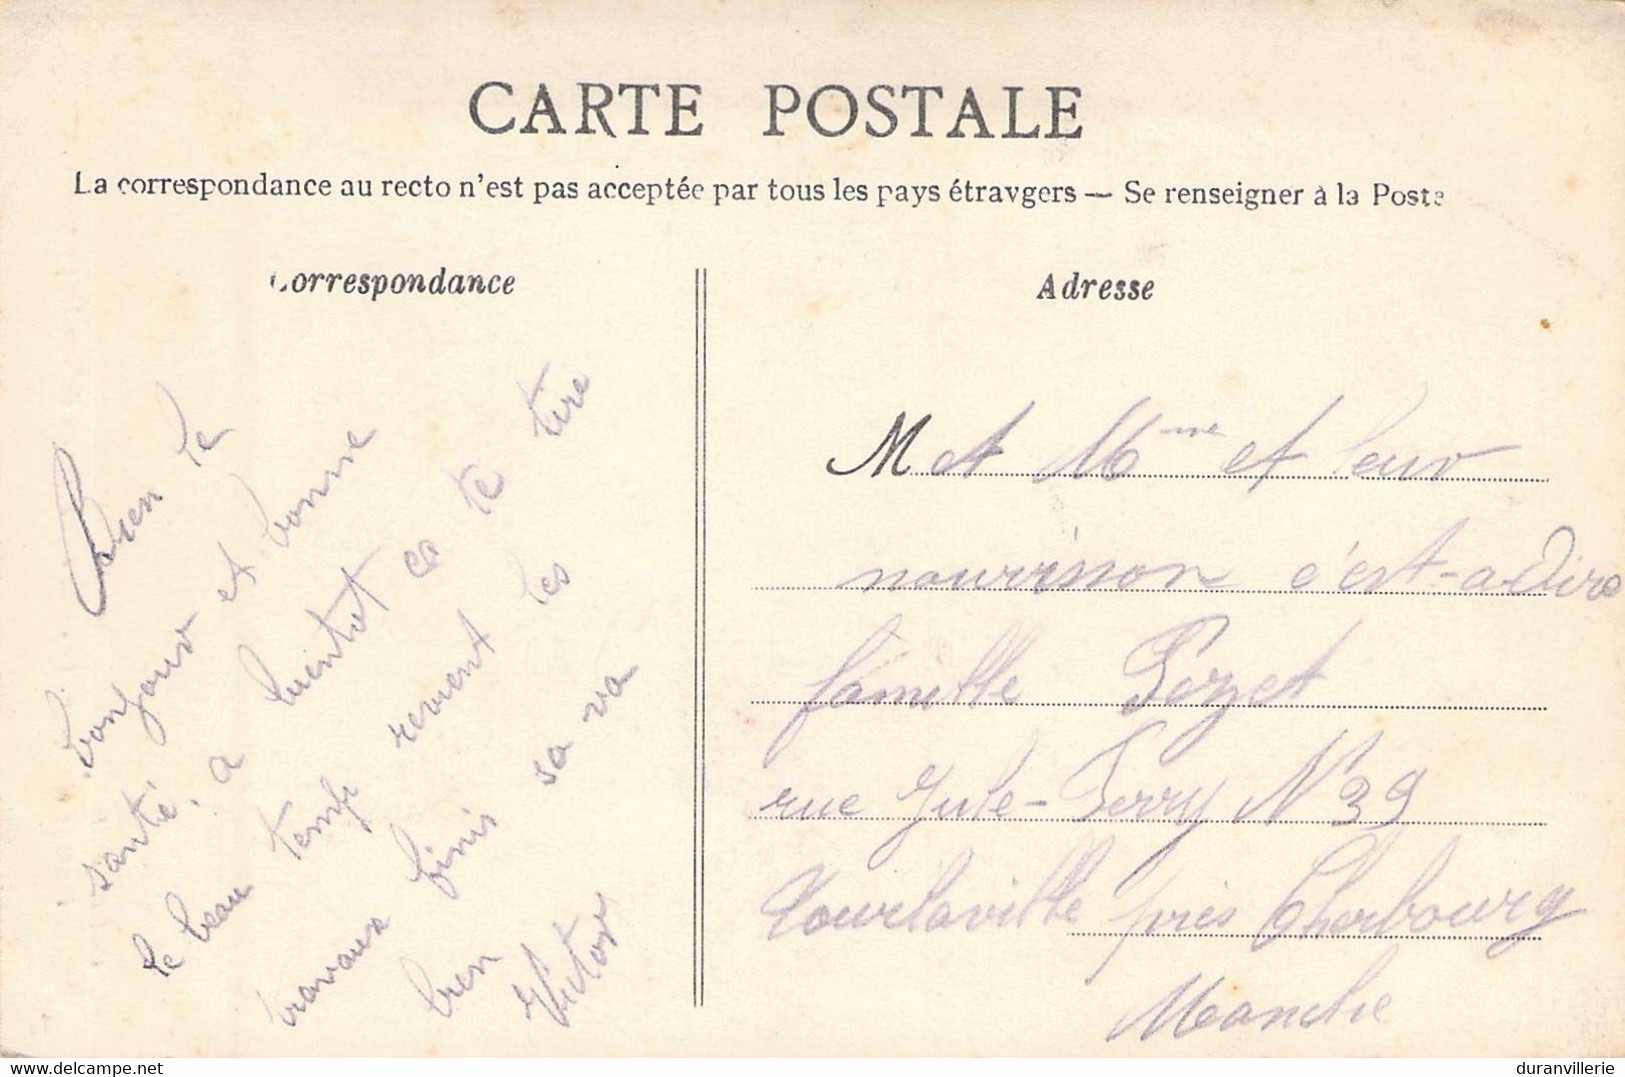 CARTE POSTALE
La correspondance au recto n'est pas acceptée par tous les pays étravgers — Se renseigner à la Poste
Correspondance
Bien le
bonjour et bonne
santé. a bientot ca te tire
le beau temp revient les
travaux finis sa va
bien Victor
Adresse
M et Mme et leur
nourisson c'est-a-dire
famille Pezet
rue Jule-Ferry N°39
Tourlaville près Cherbourg
Manche
delcampe.net
duranvillerie